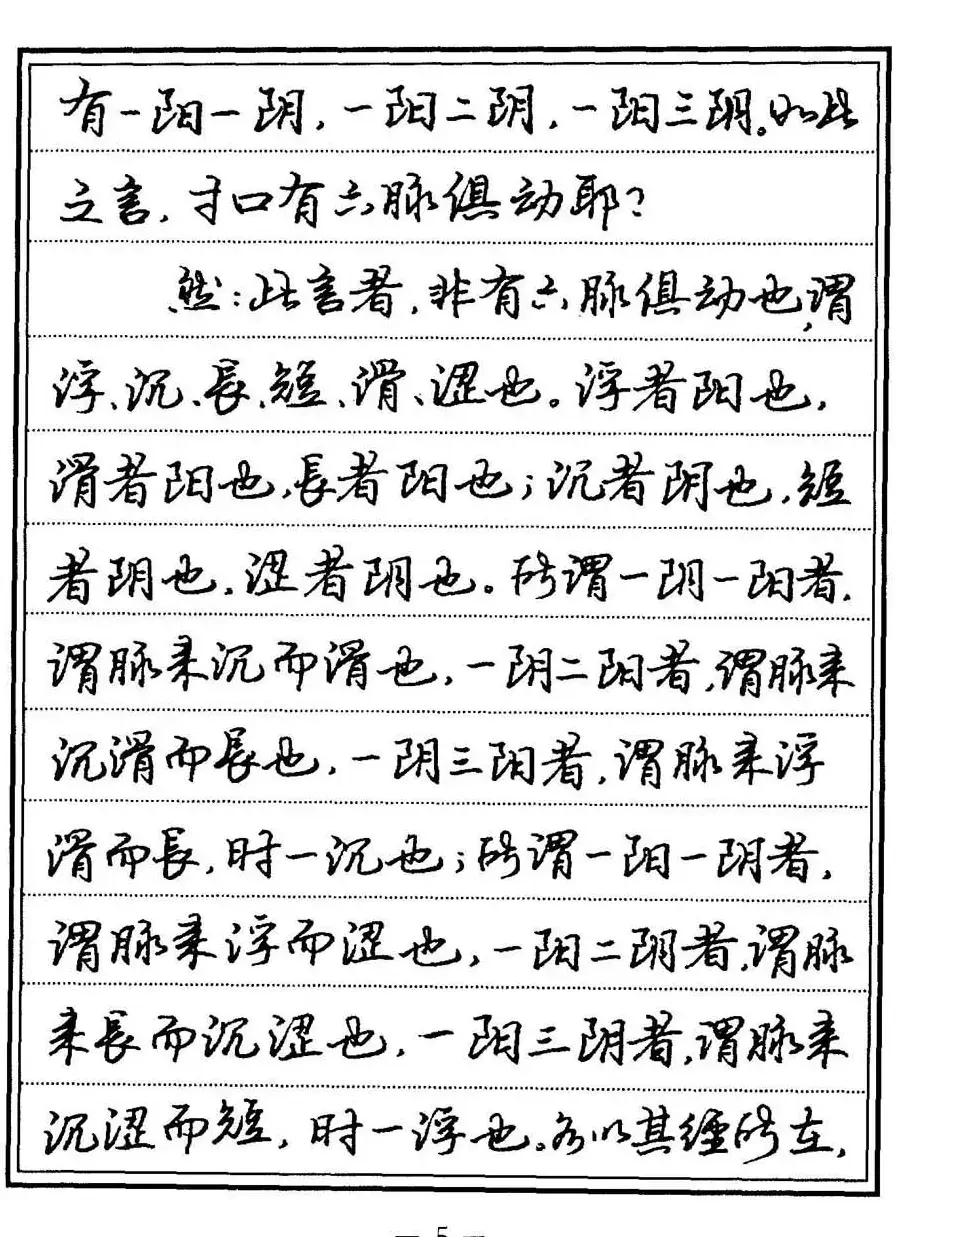 有一阳一阴,一阳二阴,一阳三阴。如此
之言,寸口有六脉俱动耶?
然:此言者,非有六脉俱动也,谓
浮、沉、長、短、滑、涩也。浮者阳也,
滑者阳也,長者阳也;沉者阴也,短
者阴也,涩者阴也。所谓一阴一阳者,
谓脉来沉而滑也,一阴二阳者,谓脉来
沉滑而長也,一阴三阳者,谓脉来浮
滑而長,时一沉也;所谓一阳一阴者,
谓脉来浮而涩也,一阳二阴者,谓脉
来長而沉涩也,一阳三阴者,谓脉来
沉涩而短,时一浮也。各以其經所在,
— 5 —